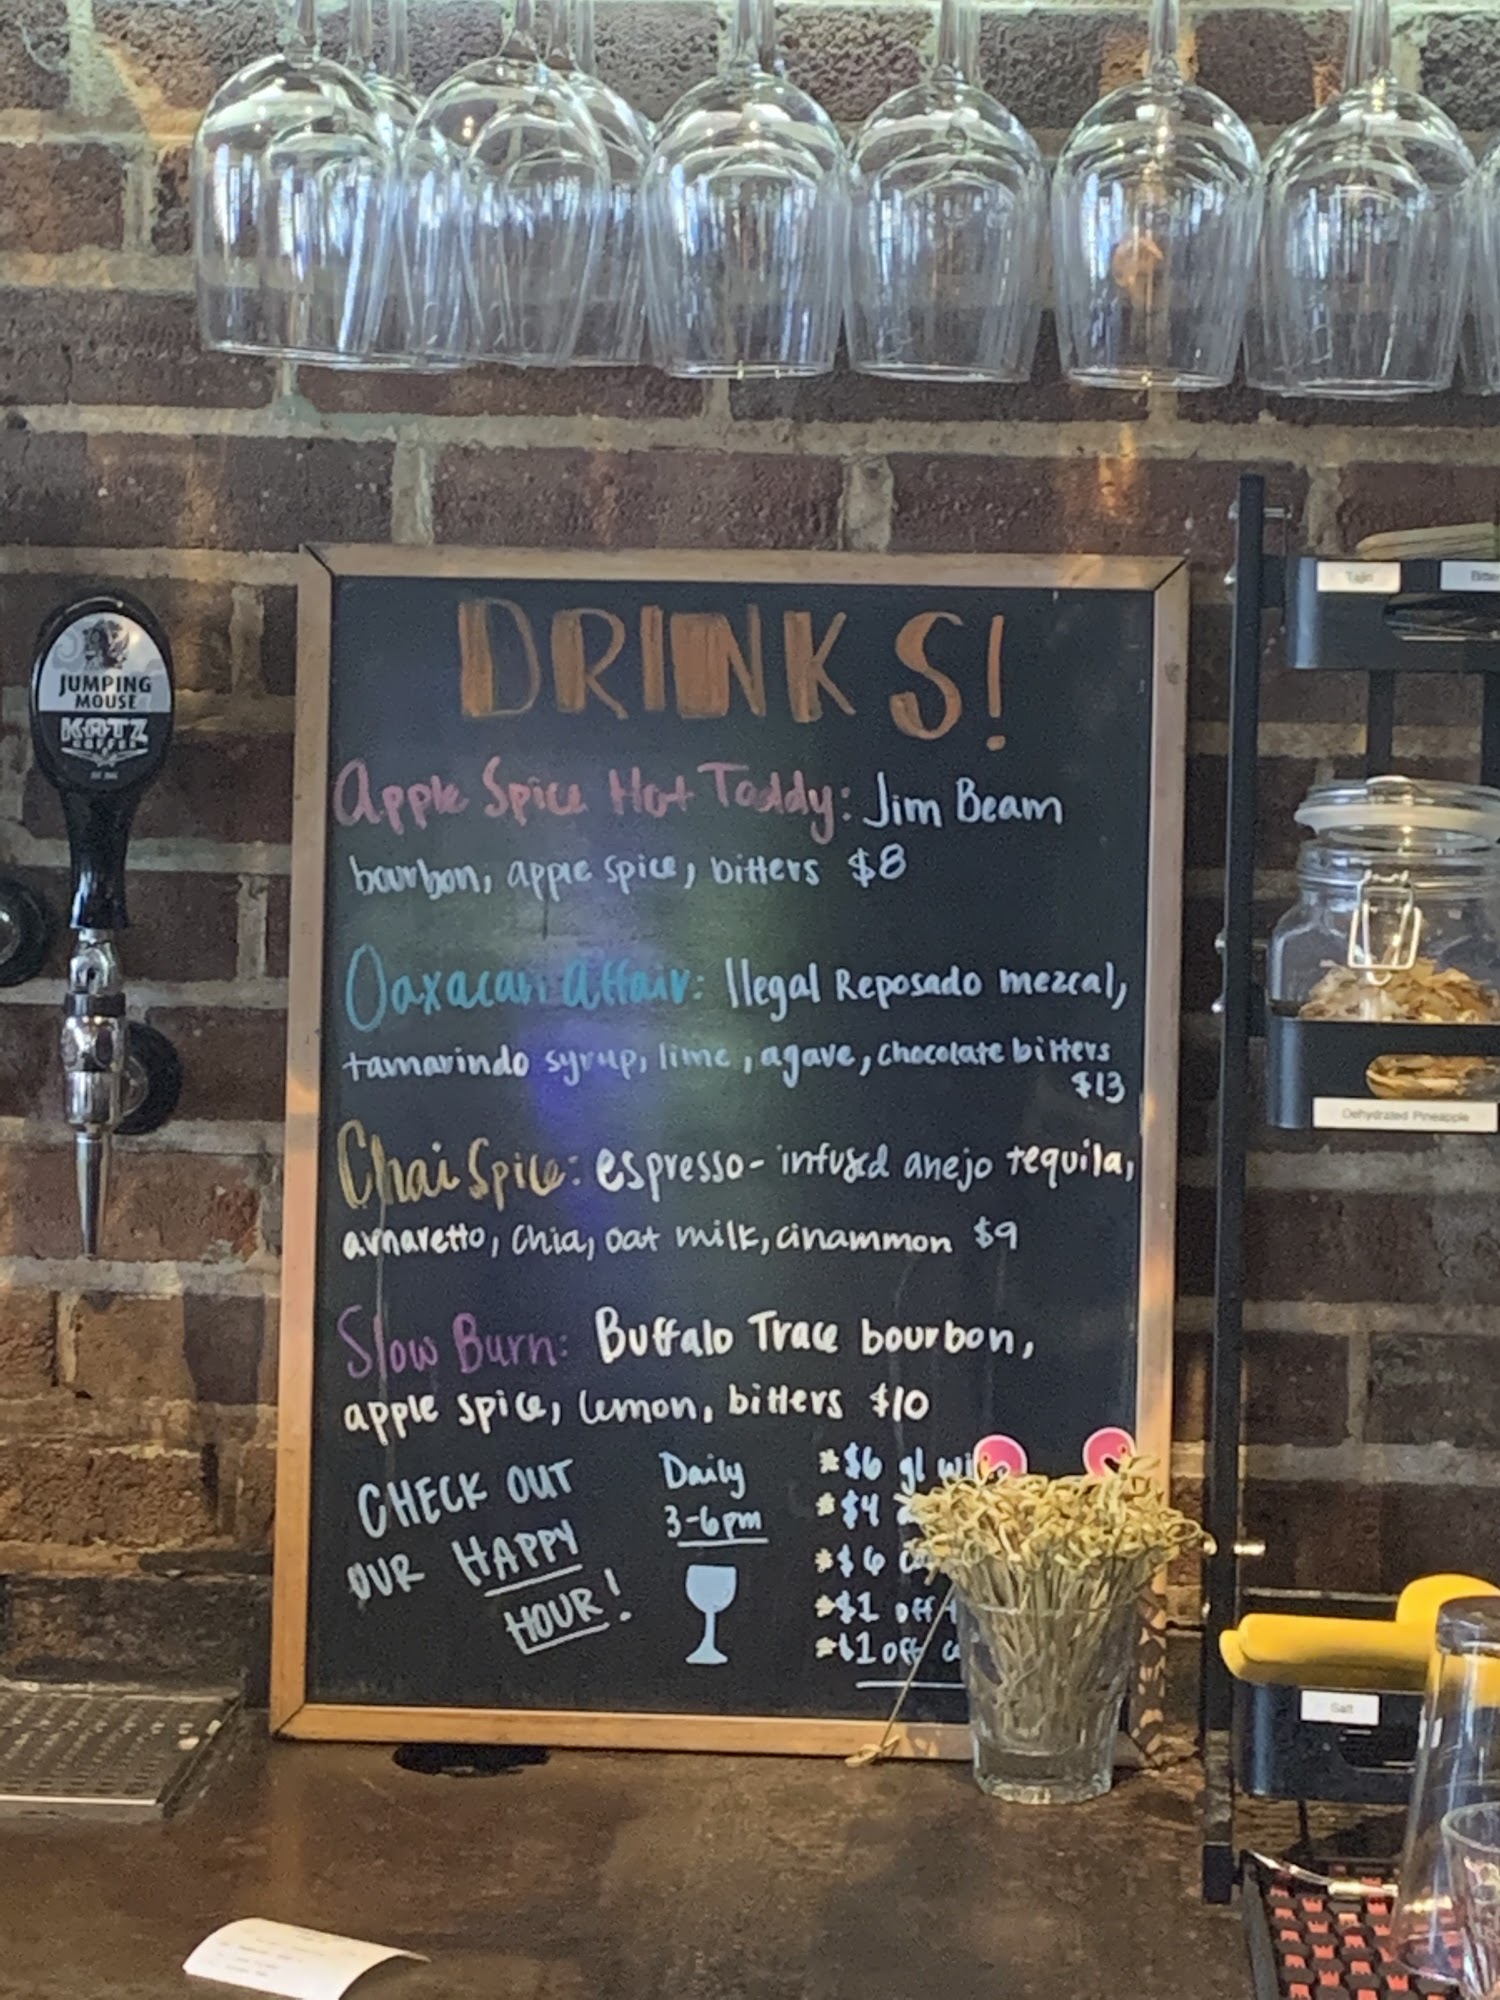 JUMPING
MOUSE
KATZ
COFFEE
DRINKS!
Apple Spice Hot Toddy: Jim Beam
bourbon, apple spice, bitters $8
Oaxacan Affair: Ilegal Reposado mezcal,
tamarindo syrup, lime, agave, chocolate bitters
$13
Chai Spice: espresso-infused anejo tequila,
amaretto, chia, oat milk, cinammon $9
Slow Burn: Buffalo Trace bourbon,
apple spice, lemon, bitters $10
CHECK OUT
OUR HAPPY
HOUR!
Daily
3-6pm
*$6 gl
*$4
*$6
*$1 off
*$1 off
Tajin
Dehydrated Pineapple
Salt